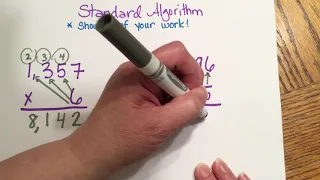 Standard Algorithm
* Show of your work!
2 3 4
1,357
x 6
8,142
6